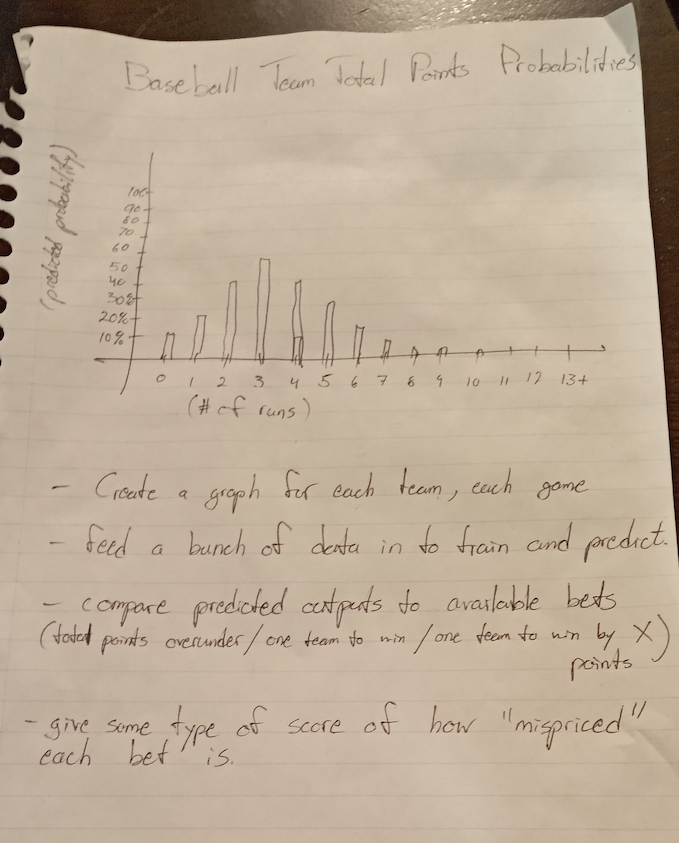 Baseball Team Total Points Probabilities
(predicted probability)
100
90
80
70
60
50
40
30%
20%
10%
0 1 2 3 4 5 6 7 8 9 10 11 12 13+
(# of runs)
- Create a graph for each team, each game
- feed a bunch of data in to train and predict.
- compare predicted outputs to available bets
(total points overunder / one team to win / one team to win by X
points)
- give some type of score of how "mispriced"
each bet is.